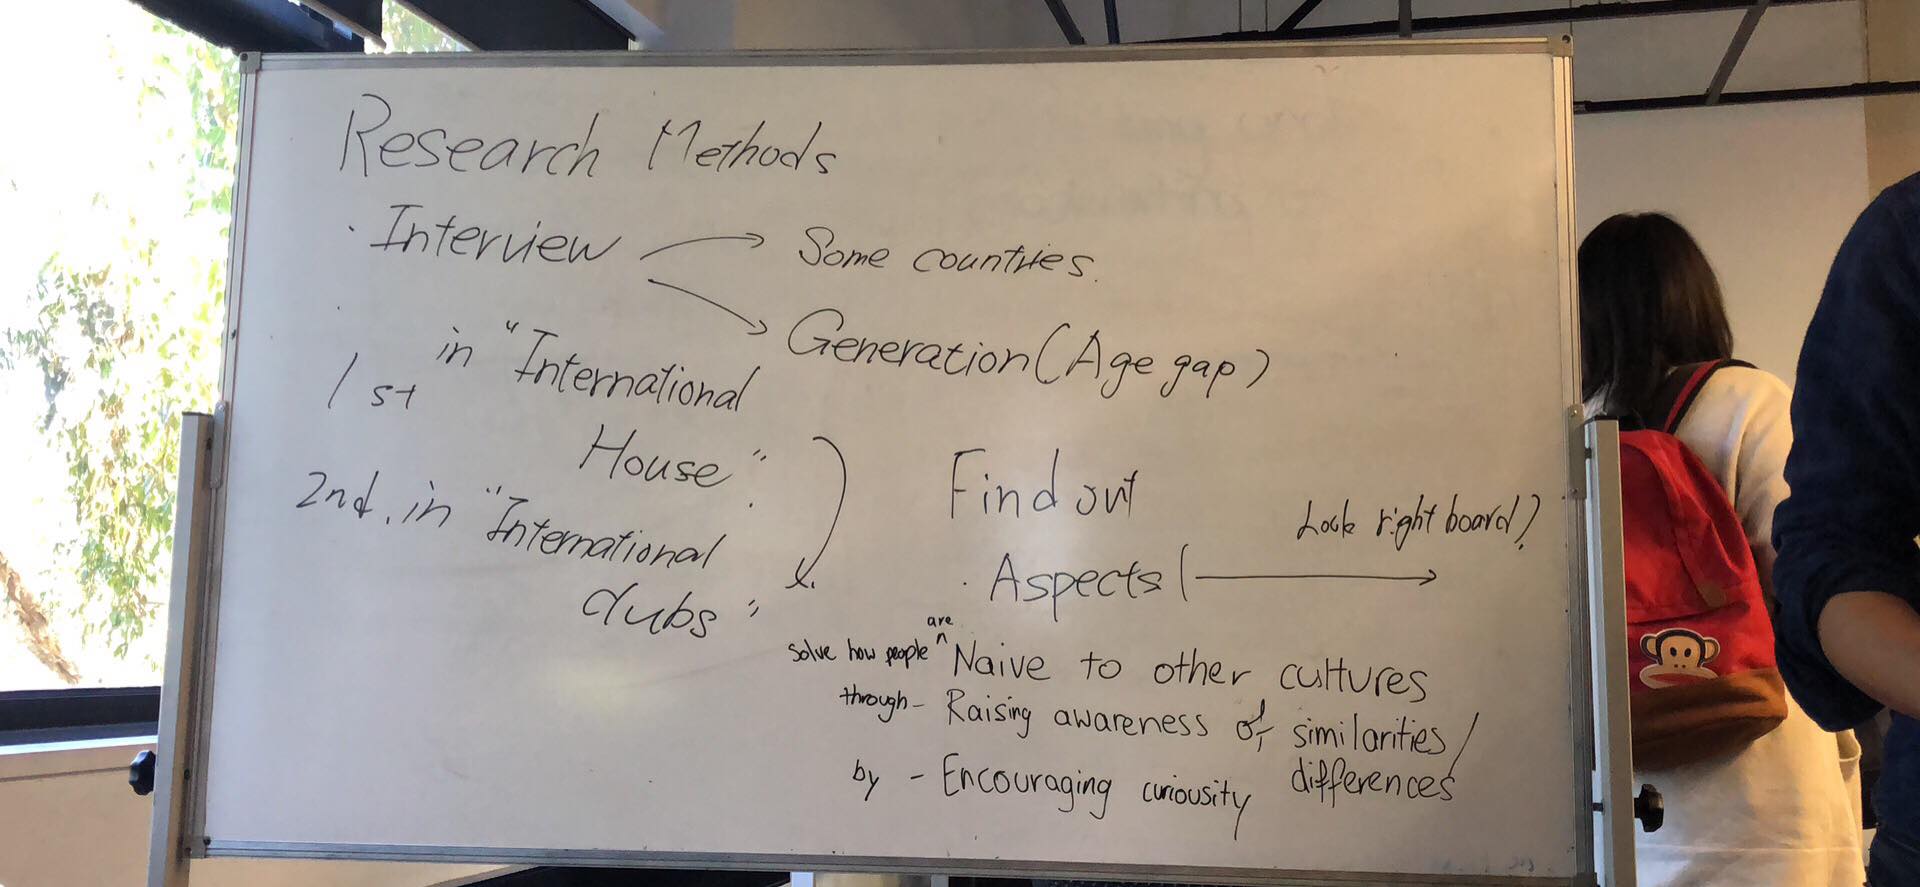 Research Methods
· Interview → Some countries.
→ Generation (Age gap)
1st in "International
House".
2nd. in "International
clubs"
Find out
Look right board?
· Aspects ( →
solve how people are Naive to other cultures
through - Raising awareness of similarities /
differences
by - Encouraging curiousity